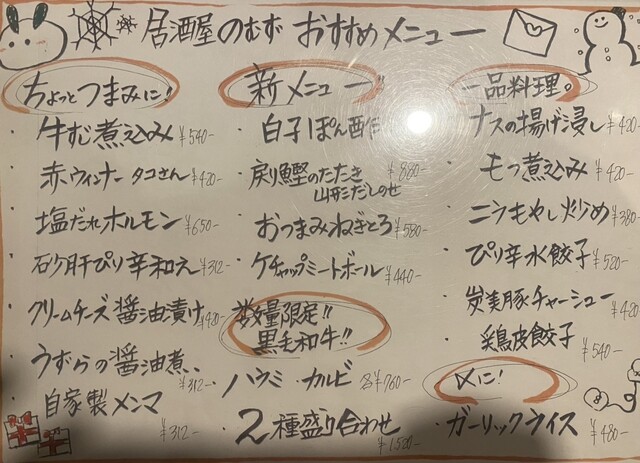 居酒屋のむず おすすめメニュー
ちょっとつまみに!
・牛すじ煮込み ¥540-
・赤ウィンナー タコさん ¥420-
・塩だれホルモン ¥650-
・砂肝ぴり辛和え ¥312-
・クリームチーズ醤油漬け ¥420-
・うずらの醤油煮、 ¥312-
・自家製メンマ ¥312-
新メニュー!!
・白子ぽん酢
・戻り鰹のたたき 山形だしのせ ¥880-
・おつまみねぎとろ ¥580-
・ケチャップミートボール ¥440-
数量限定!!
黒毛和牛!!
・ハラミ・カルビ 各¥760-
・2種盛り合わせ ¥1,520-
一品料理。
・ナスの揚げ浸し ¥420-
・もつ煮込み ¥420-
・ニラもやし炒め ¥380-
・ぴり辛水餃子 ¥520-
・炭美豚チャーシュー ¥420-
・鶏皮餃子 ¥540-
〆に!
・ガーリックライス ¥480-